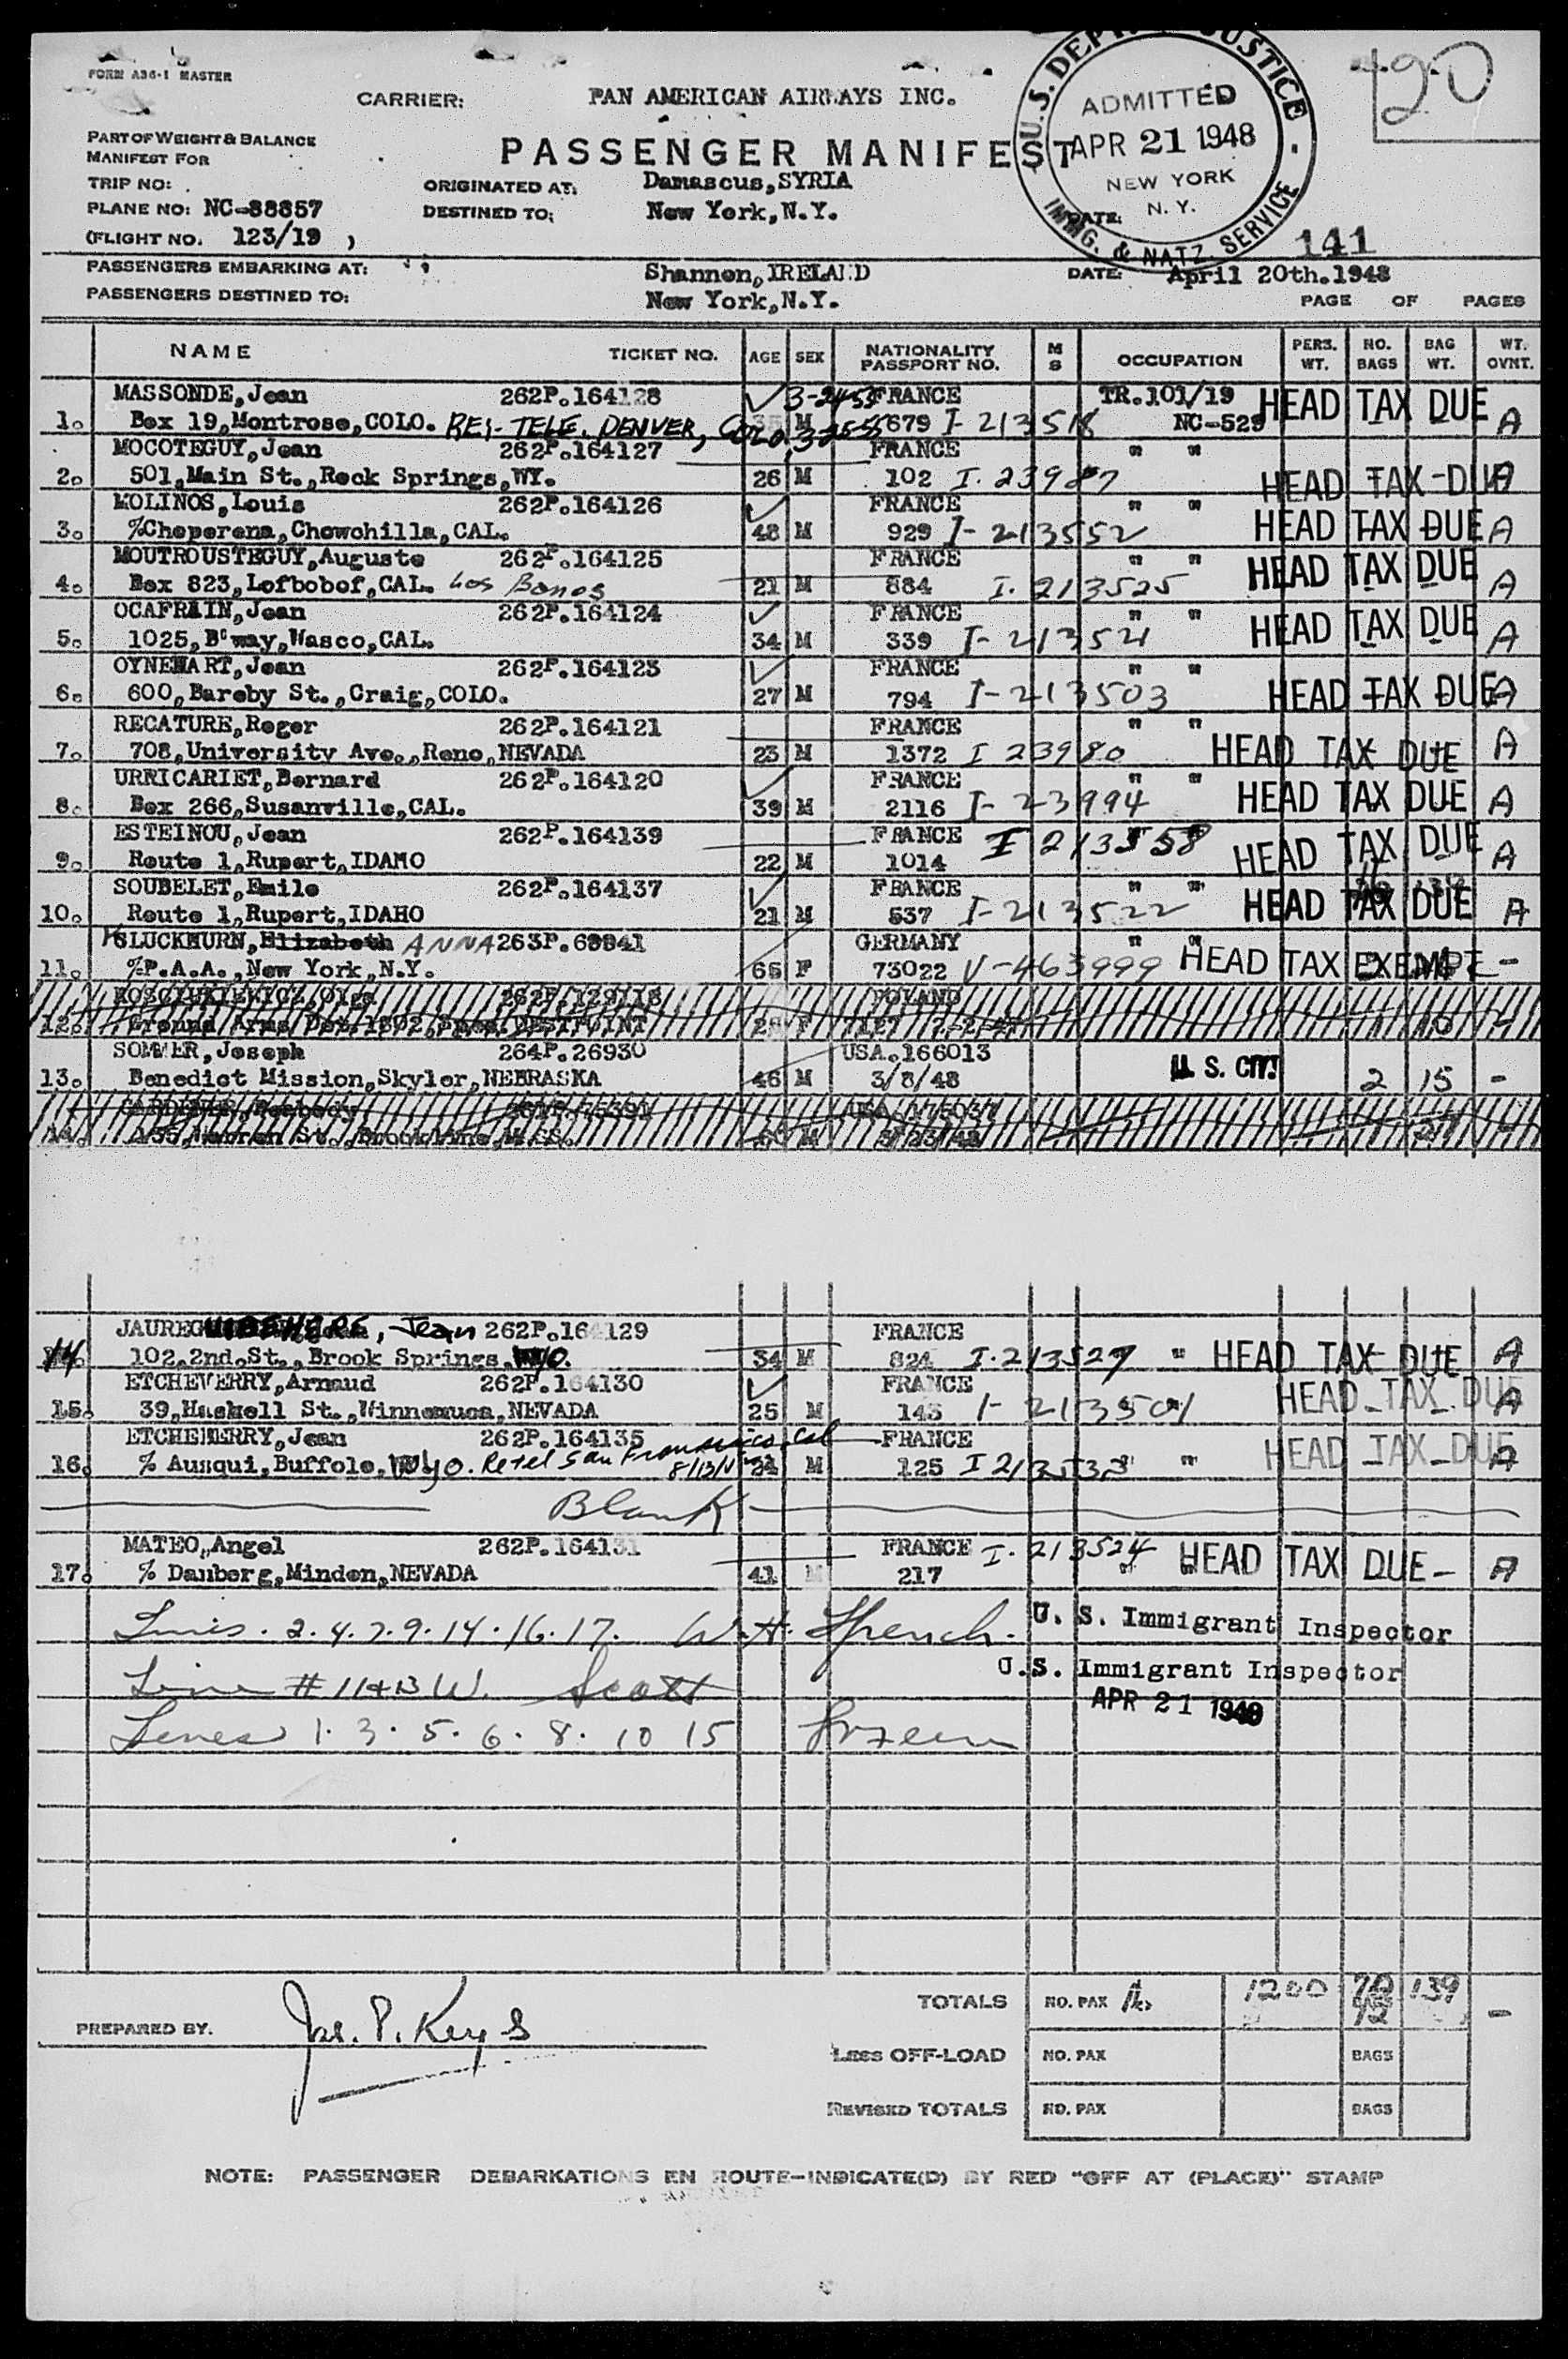 FORM A36-1 MASTER
CARRIER: PAN AMERICAN AIRWAYS INC.
PART OF WEIGHT & BALANCE
MANIFEST FOR
PASSENGER MANIFEST
U.S. DEPT. JUSTICE
ADMITTED
APR 21 1948
NEW YORK
N. Y.
IMMIG. & NATZ. SERVICE
120
TRIP NO:
ORIGINATED AT: Damascus,SYRIA
PLANE NO: NC-88857
DESTINED TO: New York,N.Y.
DATE:
(FLIGHT NO. 123/19 )
141
PASSENGERS EMBARKING AT: Shannon,IRELAND DATE: April 20th.1948
PASSENGERS DESTINED TO: New York,N.Y. PAGE OF PAGES
NAME TICKET NO. AGE SEX NATIONALITY PASSPORT NO. M S OCCUPATION PERS. WT. NO. BAGS BAG WT. WT. OVNT.
MASSONDE,Jean 262P.164128 3-24-55 FRANCE TR.101/19 HEAD TAX DUE
1. Box 19,Montrose,COLO. REG-TELE. DENVER, COLO. 3-25-55 M 679 I-213518 NC-529 A
MOCOTEGUY,Jean 262P.164127 FRANCE " "
2. 501,Main St.,Rock Springs,WY. 26 M 102 I.23987 HEAD TAX-DUE A
MOLINOS,Louis 262P.164126 FRANCE " "
3. %Cheperena,Chowchilla,CAL. 48 M 929 I-213552 HEAD TAX DUE A
MOUTROUSTEGUY,Auguste 262P.164125 FRANCE " "
4. Box 823,Lofbobof,CAL. Los Banos 21 M 884 I.213525 HEAD TAX DUE A
OCAFRAIN,Jean 262P.164124 FRANCE " "
5. 1025,B'way,Wasco,CAL. 34 M 339 I-213521 HEAD TAX DUE A
OYNEHART,Jean 262P.164123 FRANCE " "
6. 600,Bareby St.,Craig,COLO. 27 M 794 I-213503 HEAD TAX DUE A
RECATURE,Roger 262P.164121 FRANCE " "
7. 708,University Ave.,Reno,NEVADA 23 M 1372 I 23980 HEAD TAX DUE A
URRICARIET,Bernard 262P.164120 FRANCE " "
8. Box 266,Susanville,CAL. 39 M 2116 I-23994 HEAD TAX DUE A
ESTEINOU,Jean 262P.164139 FRANCE I 213558
9. Route 1,Rupert,IDAHO 22 M 1014 HEAD TAX DUE A
SOUBELET,Emile 262P.164137 FRANCE " "
10. Route 1,Rupert,IDAHO 21 M 537 I-213522 HEAD TAX DUE A
GLUCKHURN,Elizabeth ANNA 263P.68841 GERMANY " "
11. %P.A.A.,New York,N.Y. 65 F 73022 V-463999 HEAD TAX EXEMPT -
KOSCIUKIEWICZ,Olga 262P.129118 POLAND
12. WESTPOINT F
SOMMER,Joseph 264P.26930 USA.166013
13. Benedict Mission,Skyler,NEBRASKA 46 M 3/8/48 U. S. CIT. 2 15 -
USA.175037
14. St.,Brookline,MASS. M 3/23/48
JAUREGUIBEHERE, Jean 262P.164129 FRANCE
14 102,2nd.St.,Brook Springs,WYO. 34 M 824 I.213527 " HEAD TAX DUE A
ETCHEVERRY,Arnaud 262P.164130 FRANCE
15. 39,Haskell St.,Winnemuca,NEVADA 25 M 143 I-213501 HEAD TAX DUE A
ETCHEBERRY,Jean 262P.164135 FRANCE
16. % Ausqui,Buffolo,Wyo. Retel San Francisco, Cal M 125 I 213533 " " HEAD TAX DUE A
Blank
MATEO,Angel 262P.164131 FRANCE I.213524
17. % Dauberg,Minden,NEVADA 41 M 217 " " HEAD TAX DUE- A
Lines. 2.4.7.9.14.16.17. W.H. French. U. S. Immigrant Inspector
Line # 11+13 W. Scott U.S. Immigrant Inspector
APR 21 1948
Lines 1. 3. 5. 6. 8. 10 15
TOTALS NO. PAX 16 1200 139 -
PREPARED BY. Jas. P. Keys
LESS OFF-LOAD NO. PAX BAGS
REVISED TOTALS NO. PAX BAGS
NOTE: PASSENGER DEBARKATIONS EN ROUTE-INDICATE(D) BY RED "OFF AT (PLACE)" STAMP